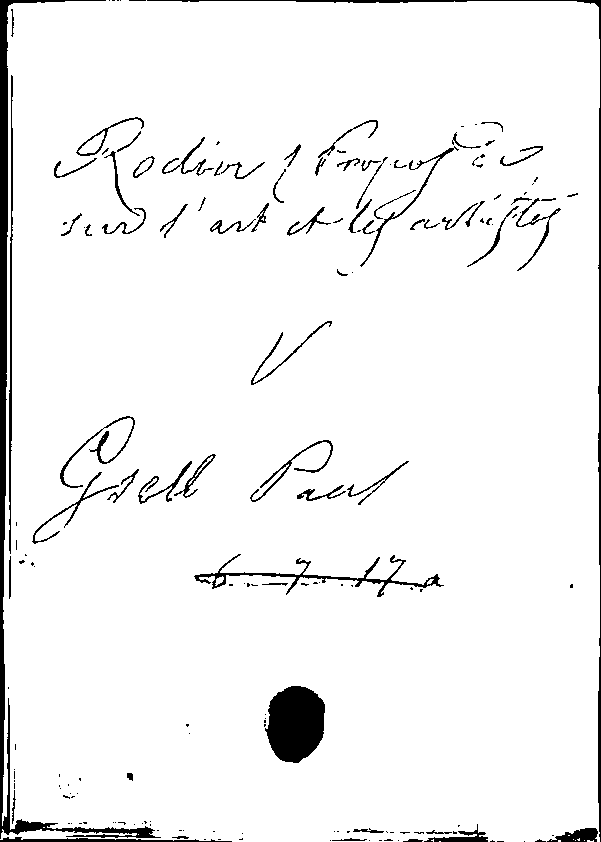 Rodin / Propos de
sur l'art et les artistes
V
Gsell Paul
6 7 17 a